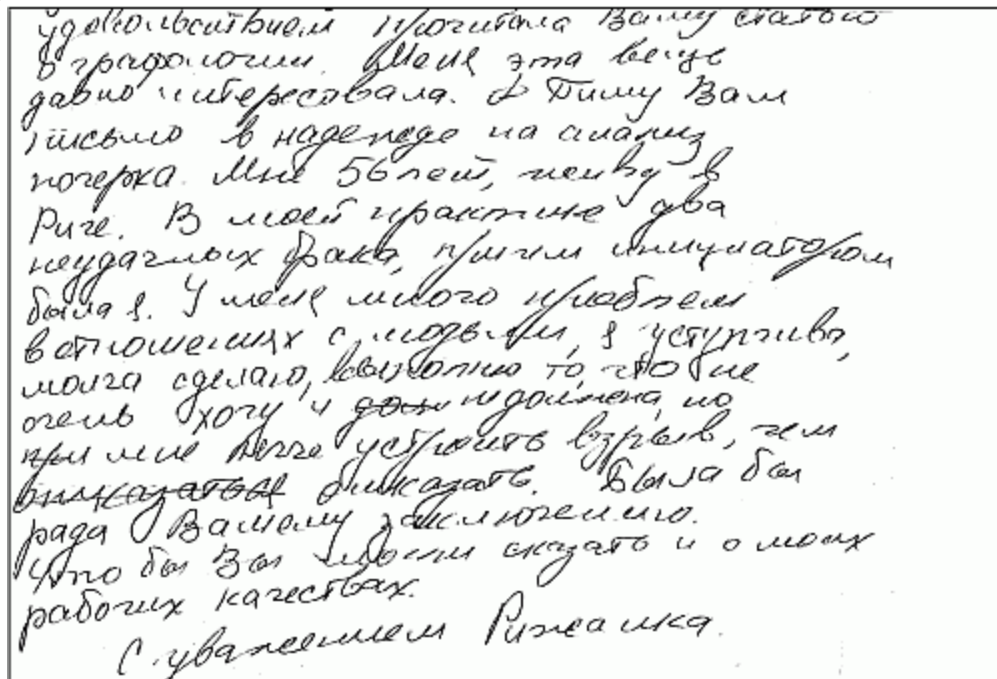 удовольствием прочитала Вашу статью
о графологии. Меня эта вещь
давно интересовала. Пишу Вам
письмо в надежде на анализ
почерка. Мне 56 лет, живу в
Риге. В моей практике два
неудачных брака, причем инициатором
была я. У меня много проблем
в отношениях с людьми, я уступчива,
молча сделаю, выполню то, что не
очень хочу и не должна, но
мне легче устроить взрыв, чем
отказать. Была бы
рада Вашему заключению.
Что бы Вы могли сказать и о моих
рабочих качествах.
С уважением Рижанка.